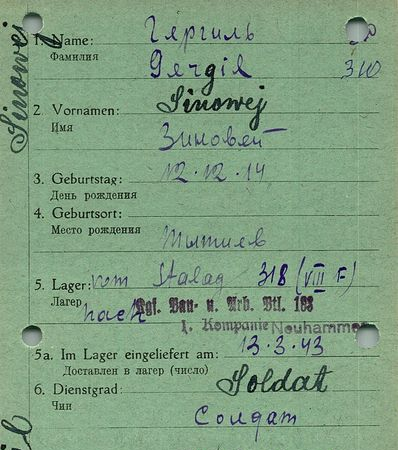 1. Name: Гергиль
Фамилия Gergil 310
2. Vornamen: Sinowej
Имя Зиновей
3. Geburtstag: 12.12.14
День рождения
4. Geburtsort:
Место рождения
5. Lager: vom Stalag 318 (VIII F)
Лагер nach Kgf. Bau- u. Arb. Btl. 188
1. Kompanie Neuhammer
5a. Im Lager eingeliefert am: 13.3.43
Доставлен в лагер (число)
6. Dienstgrad: Soldat
Чин Солдат
Sinowej